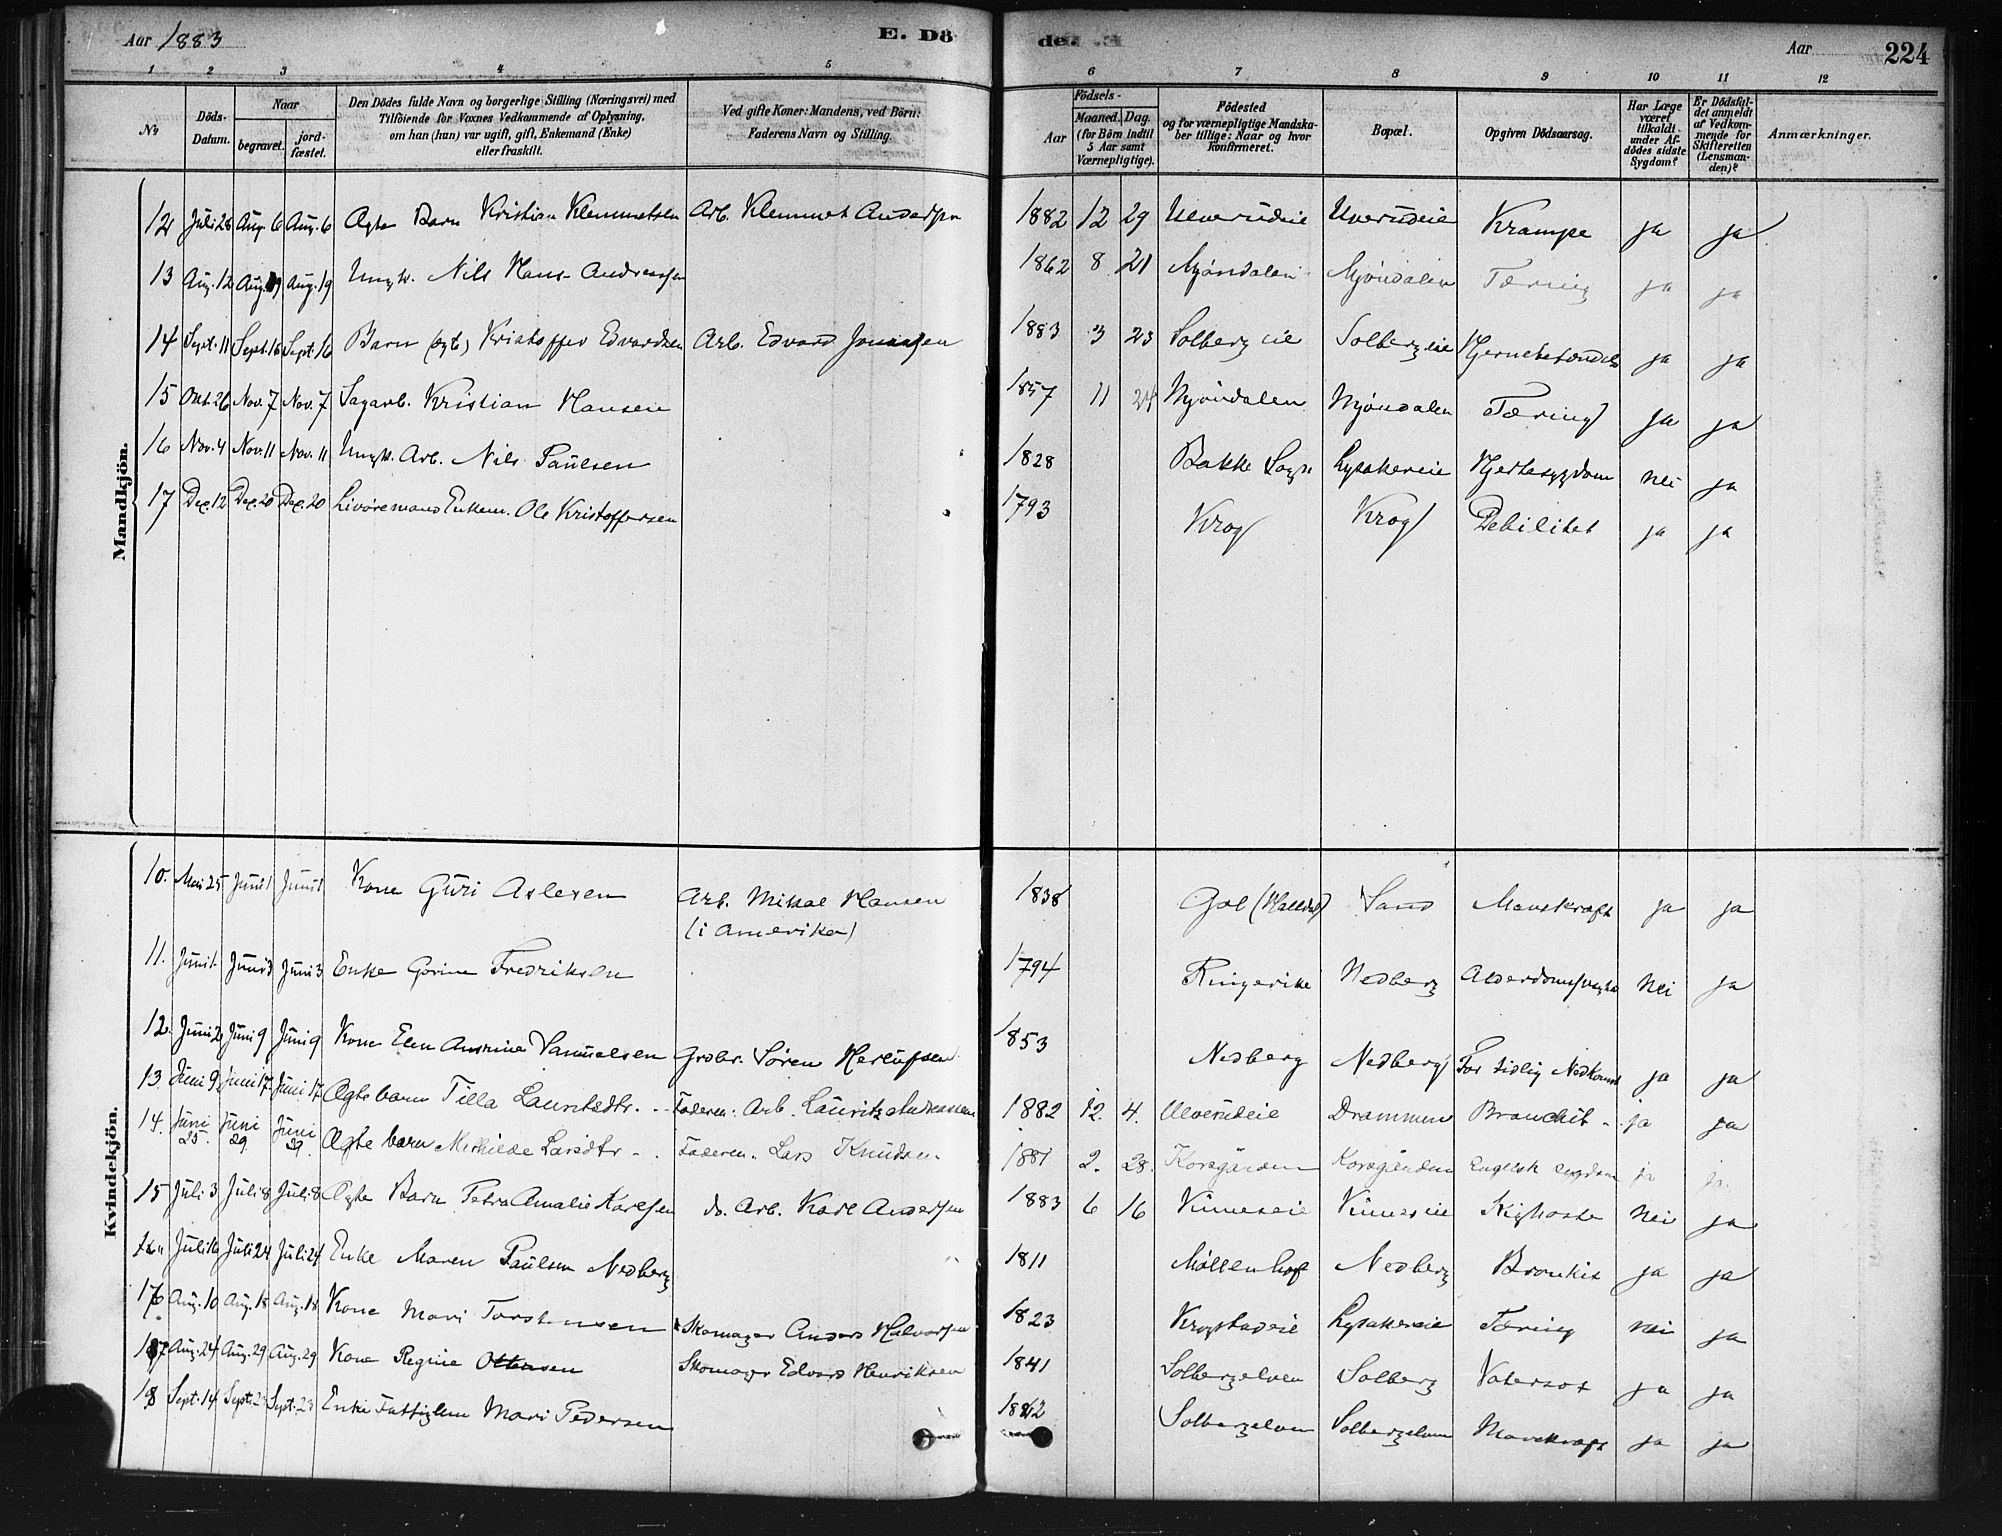 Aar 1883 E. Dö
de. Aar 224
1 2 3 4 5 6 7 8 9 10 11 12
No
Döds-Datum.
Naar
begravet.
jord-fæstet.
Den Dödes fulde Navn og borgerlige Stilling (Næringsvei) med
Tilföiende for Voxnes Vedkommende af Oplysning,
om han (hun) var ugift, gift, Enkemand (Enke)
eller fraskilt.
Ved gifte Koner: Mandens, ved Börn:
Faderens Navn og Stilling.
Födsels-
Aar
Maaned. Dag.
(for Börn indtil
5 Aar samt
Værnepligtige).
Födested
og for værnepligtige Mandska-
ber tillige: Naar og hvor
konfirmeret.
Bopæl.
Opgiven Dödsaarsag.
Har Læge
været
tilkaldt
under Af-
dödes sidste
Sygdom?
Er Dödsfal-
det anmeldt
af Vedkom-
mende for
Skifteretten
(Lensman-
den)?
Anmærkninger.
Mandkjön.
12 Juli 28 Aug. 6 Aug. 6 Ægte Barn Kristian Klemmetsen Arb. Klemmet Andersen 1882 12 29 Ulverudeie Ulverudeie Krampe ja ja
13 Aug. 12 Aug. 19 Aug. 19 Ungk. Nils Hans Andreassen 1862 8 21 Mjöndalen Mjöndalen Tæring ja ja
14 Sept. 11 Sept. 16 Sept. 16 Barn (ægte) Kristoffer Edvardsen Arb. Edvard 1883 3 23 Solberg eie Solberg eie Hjernebetændelse ja ja
15 Okt. 26 Nov. 7 Nov. 7 Sagarb. Kristian Hansen 1857 11 24 Mjöndalen Mjöndalen Tæring ja ja
16 Nov. 4 Nov. 11 Nov. 11 Ungk. Arb. Nils Paulsen 1828 Bakke Sogn Lysakereie Hjertesygdom nei ja
17 Dec. 12 Dec. 20 Dec. 20 Livöremand Enkem. Ole Kristoffersen 1793 Krog Krog Debilitet ja ja
Kvindekjön.
10. Mai 25 Juni 1 Juni 1 Kone Guri Aslesen Arb. Mikkal Hansen 1838 Gol (Halldal) Sand Mavekræft ja ja
(i Amerika)
11. Juni 1 Juni 3 Juni 3 Enke Gorine Fredriksen 1794 Ringerike Nedberg Alderdomssvaghed nei ja
12. Juni 2 Juni 9 Juni 9 Kone Elen Andrine Samuelsen Grdbr. Sören Herlufsen 1853 Nedberg Nedberg For tidlig Nedkomst ja ja
13. Juni 9 Juni 17. Juni 17 Ægte barn Tilla Lauritzdtr. Faderen: Arb. Lauritz Andreassen 1882 12. 4. Ulverudeie Drammen Bronchit ja ja
14. Juni 25. Juni 29 Juni 29. Ægte barn Mathilde Larsdtr Faderen. Lars Knudsen 1881 2. 28. Korsgården Korsgården Engelsk sygdom ja ja.
15 Juli 3 Juli 8 Juli 8 Ægte Barn Petra Amalie Karlsen do. Arb. Karl Andersen 1883 6 16 Kinneseie Kinneseie Kighoste nei ja
Juli 16 Juli 24 Juli 24 Enke Maren Paulsen Nedberg 1811 Möllenhof Nedberg Bronkit ja ja
Aug. 10 Aug. 18 Aug. 18 Kone Mari Torstensen Skomager Anders Halvorsen 1823 Krogstadeie Lysakereie Tæring nei ja
17 Aug. 24 Aug. 29 Aug. 29 Kone Regine Ottersen Skomager Edvard Henriksen 1841 Solbergelven Solberg Vatersot ja ja
18 Sept. 14 Sept. 23 Sept. 23 Enke Fattiglem Mari Pedersen Solbergelven Solbergelven Mavekræft ja ja